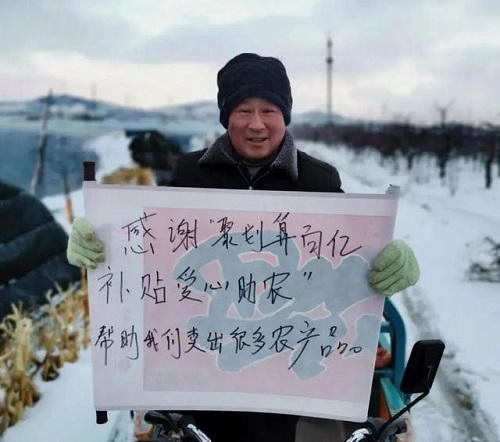 感谢"聚划算百亿
补贴爱心助农"
帮助我们卖出很多农产品。